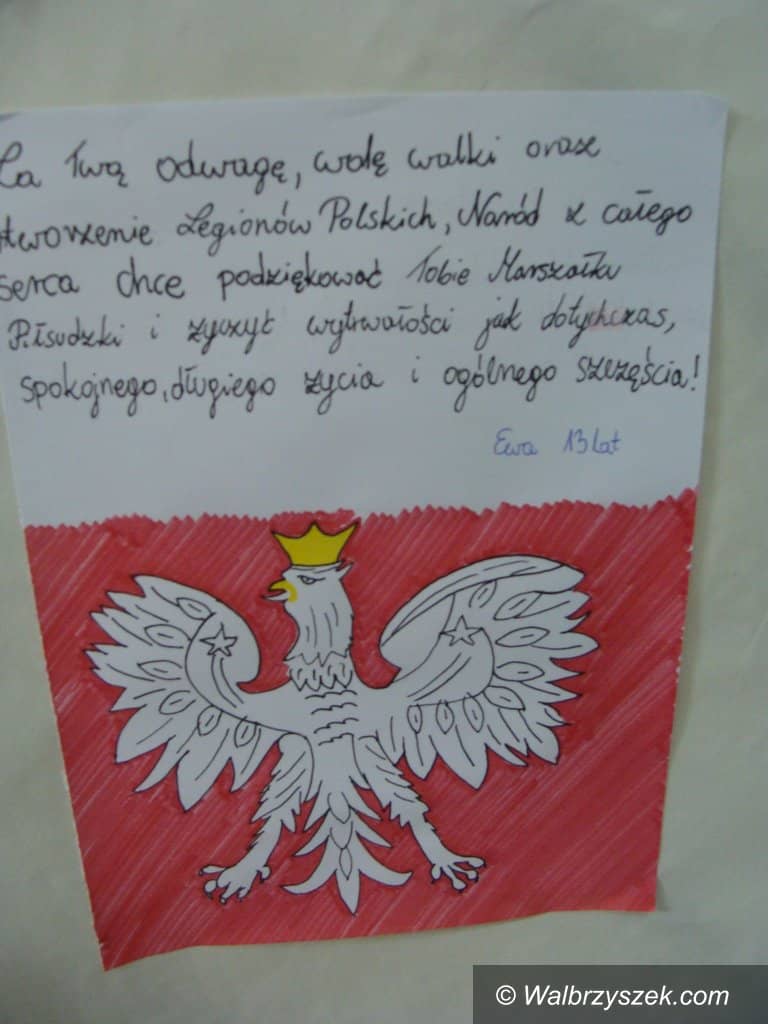 Za Twą odwagę, wolę walki oraz
stworzenie Legionów Polskich, Naród z całego
serca chce podziękować Tobie Marszałku
Piłsudzki i życzyć wytrwałości jak dotychczas,
spokojnego, długiego życia i ogólnego szczęścia!
Ewa 13 lat
© Walbrzyszek.com